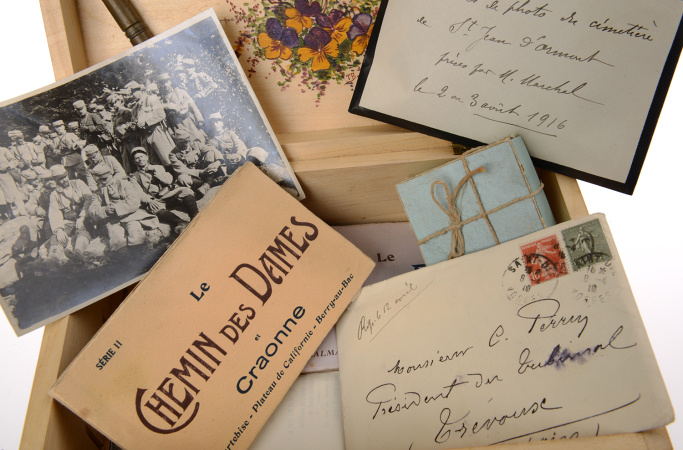 de photo du cimetière
de St Jean d'Ormont
prises par M. Marchal
le 2 ou 3 août 1916
Le
CHEMIN DES DAMES
et
Craonne
SÉRIE II
Plateau de Californie - Berry-au-Bac
Le
Rép. le 12 août
Monsieur C. Perrin
Président du Tribunal
Trévoux